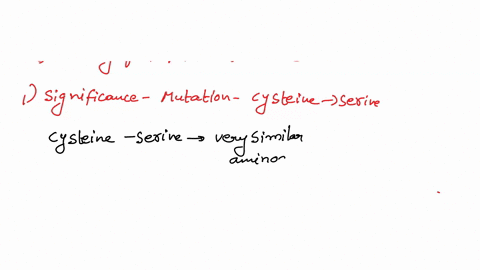 1) Significance - Mutation - cysteine → serine
cysteine - serine → very similar
amino